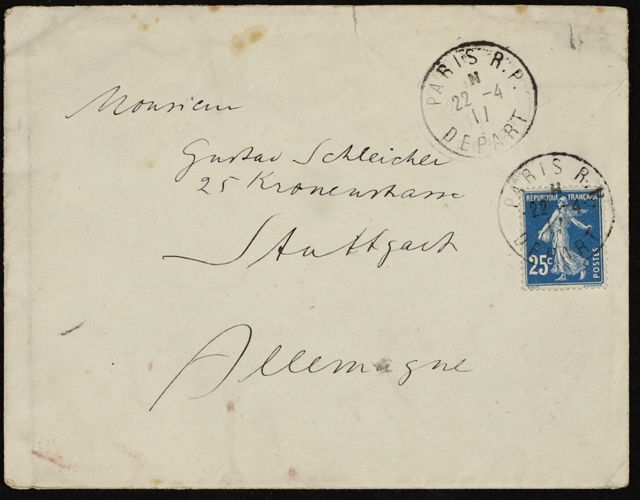 Monsieur
Gustav Schleicher
25 Kronenstrasse
Stuttgart
Allemagne
PARIS R.P.
22 -4
11
DEPART
PARIS R.P.
22 -4
DEPART
REPUBLIQUE FRANÇAISE
25c
POSTES